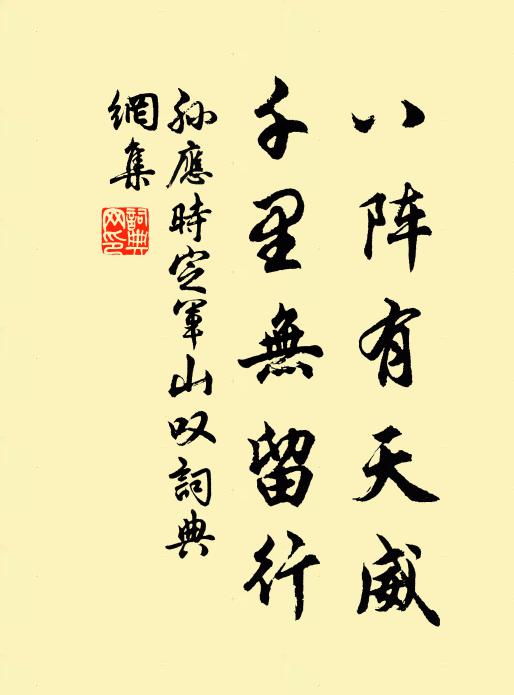 八阵有天威
千里無留行
孙應時定軍山叹詞典
網集
詞典網印